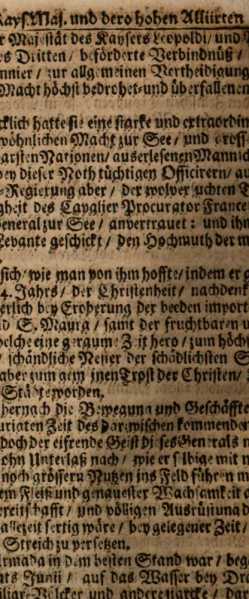 Kays. Maj. und dero hohen Alliirten
Majestät des Kaysers Leopoldi / und
Dritten / beförderte Verbindnüß /
/ zur allgemeinen Vertheidigung
Macht höchst bedrohet- und überfallenen
hatte sie eine starke und extraordin
wöhnlichen Macht zur See / und
Nationen / auserlesenen Mannsc
bey dieser Noth tüchtigen Officirern / au
Regierung aber / der wolversuchten T
des Cavalier Procurator France
General zur See / anvertrauet : und ihn
Levante geschickt / den Hochmuth der
sich / wie man von ihm hoffte / indem er
4. Jahrs / der Christenheit / nachdenk
bey Eroberung der beeden import
S. Maura / samt der fruchtbaren
welche eine geraume Zeit hero / zum höchs
/ schändliche Nester der schädlichsten S
aber zum gemeinen Trost der Christen /
Städte worden.
hernach die Bewegung und Geschäffte
Zeit des darzwischen kommenden
doch der eifrende Geist dieses Generals
ohn Unterlaß nach / wie er selbige mit
noch grössern Nutzen ins Feld führen
Fleiß und genauester Wachsamkeit
und völligen Ausrüstung d
allezeit fertig wäre / bey gelegener Zeit /
Streich zu versetzen.
Armada in dem besten Stand war / beg
Junii / auf das Wasser bey
Völcker und andere starcke / dar